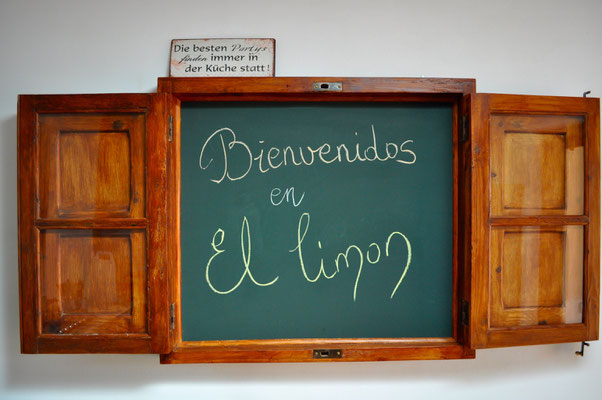 Die besten Partys
finden immer in
der Küche statt!
Bienvenidos
en
El limon